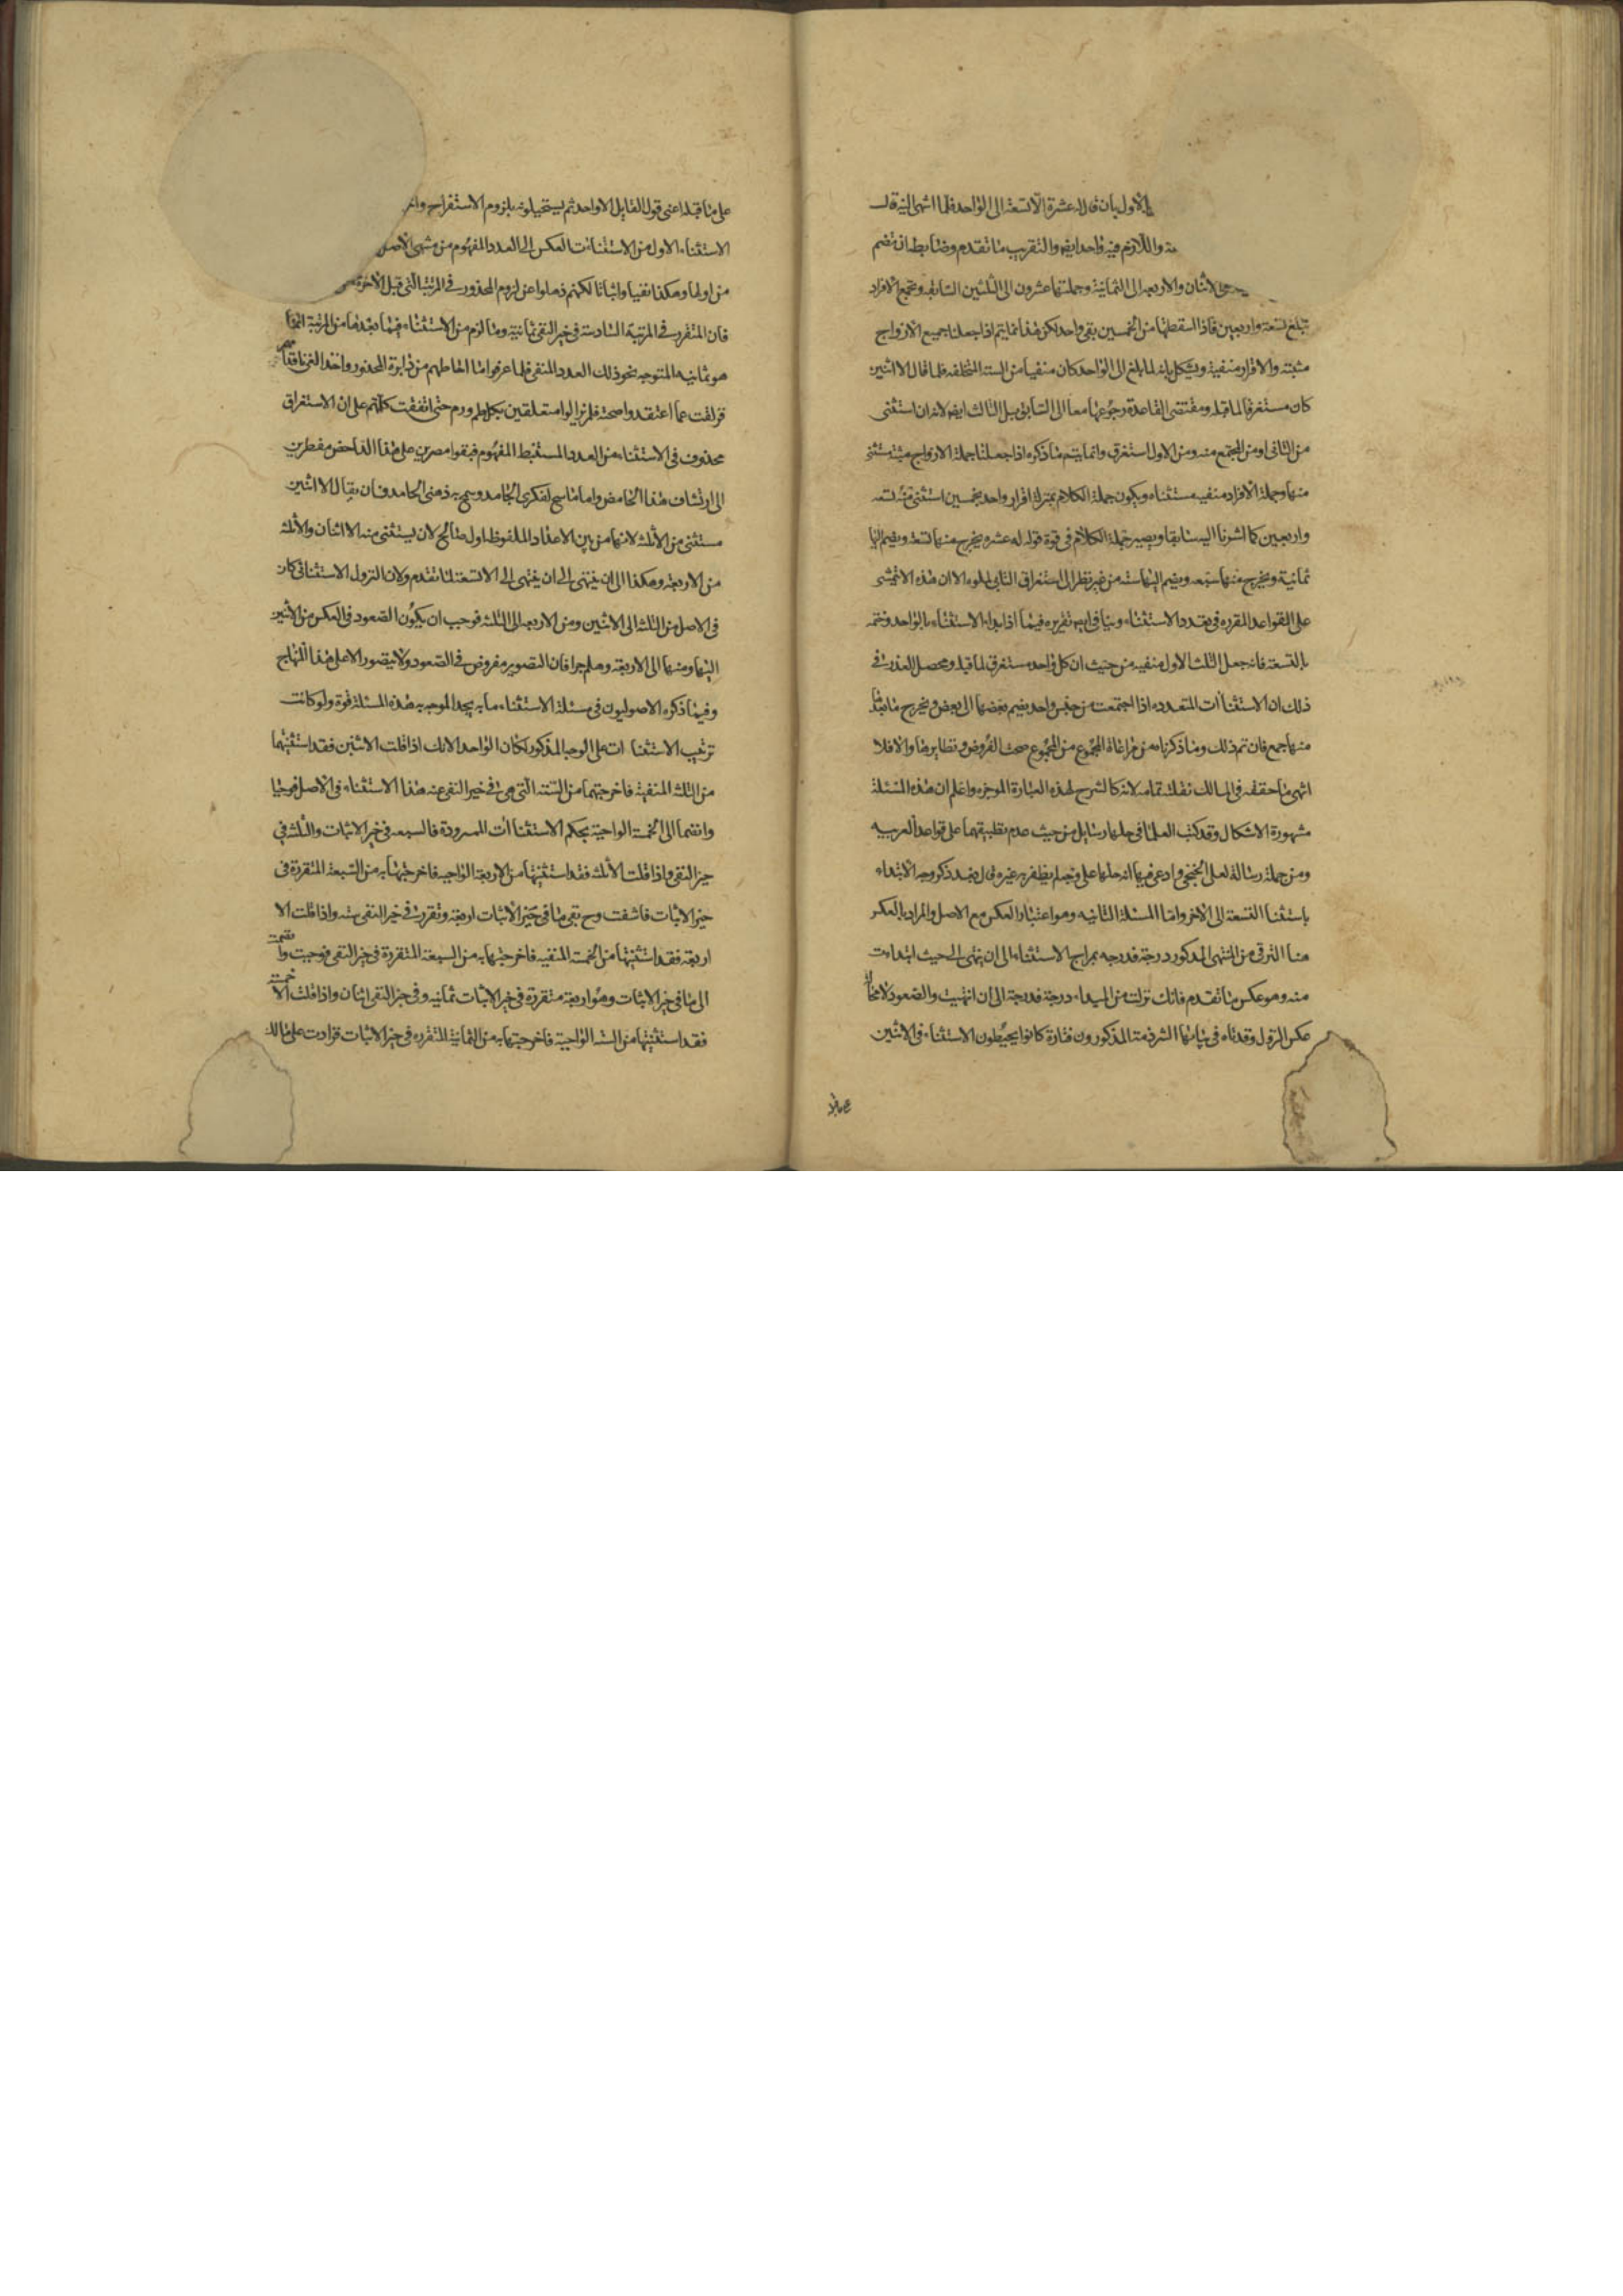 بالأول بأن قال له عشرة الا تسعة الى الواحد فلما انتهى اليه قال
واللازم فيه واحد ايضا والتقريب ما تقدم وضابطه ان تضم
الاثنان والاربعه الى الثمانية وجملتها عشرون الى الثلثين السابقه وتجمع الافراد
تبلغ تسعة واربعين فاذا اسقطتها من الخمسين بقى واحد لكن هذا انما يتم اذا جعلنا جميع الازواج
مثبته والافراد منفية ويشكل بانه لما بلغ الى الواحد كان منفيا من الستة المتخلفه فلما قال الا اثنين
كان مستغرقا لما قبله ومقتضى القاعدة رجوعها معا الى السابق بل الثالث ايضا لانه ان استثنى
من الثانى او من المجتمع منه ومن الاول استغرق وانما يتم ما ذكره اذا جعلنا جملة الازواج مثبته مستثنى
منها وجملة الافراد منفيه مستثناه ويكون جملة الكلام بمنزلة اقرار واحد بخمسين استثنى منه تسعه
واربعين كما اشرنا اليه سابقا ويصير جملة الكلام فى قوة قوله له عشره يخرج منها تسعة ويضم اليها
ثمانية ويخرج منها سبعه ويضم اليها ستة من غير نظر الى استغراق التالى لمتلوه الا ان هذه لا تتمشى
على القواعد المقرره فى تعدد الاستثناء وينافى تقريره فيما اذا بداء الاستثناء بالواحد وختمه
بالتسعة فانه جعل الثلث الاول منفيه من حيث ان كل واحد مستغرق لما قبله ومحصل العذر فى
ذلك ان الاستثناآت المتعدده اذا اجتمعت من جنس واحد يضم بعضها الى بعض ويخرج ما بقى
منها جمع فان تم ذلك وما ذكرناه من مراعاة المجموع من المجموع صحت الفروض ونظايرها والا فلا
انتهى ما حققه فى المسالك نقلته بتمامه لانه كالشرح لهذه العبارة الموجزه واعلم ان هذه المسئلة
مشهورة الاشكال وقد كتب العلما فى حلها رسايل من حيث عدم تطبيقها على قواعد العربيه
ومن جملة رسالة لعلى الخنجى وادعى فيها انه حلها على وجه لم يظفر به غيره قال بعد ذكر وجه الابتداء
باستثنا التسعة الى الاخر واما المسئلة الثانيه وهو اعتبار العكس مع الاصل والمراد بالعكس
هنا الترقى من المنتهى المذكور درجة فدرجه بمراج الاستثناء الى ان ينتهى الى حيث ابتداءت
منه وهو عكس ما تقدم فانك نزلت من المبداء درجة فدرجة الى ان انتهيت والصعود لا محالة
عكس النزول وقد تاه فى بيانها الشرذمة المذكورون فتارة كانوا يحيطون الاستثناء فى الاثنين
على ما قبله اعنى قول القايل الا واحد ثم يستحيلونه بلزوم الاستغراق
الاستثناء الاول من الاستثناآت العكس الى العدد المفهوم من منتهى الاصل
من اولها وهكذا نفيا واثباتا لكنهم ذهلوا عن لزوم المحذور فى المرتبة التى قبل الاخرة
فان المتقرر فى المرتبة السادسة فى حيز النفى ثمانية وما لزم من الاستثناء فيما بعدها من المرتبة ايضا
هو ثمانيه المتوجه نحو ذلك العدد المنفى فلما عرفوا ما احاطهم من دايرة المحذور
عما اعتقدوا صحة فلم يزالوا متعلقين بكل حتى اتفقت كلمتهم على ان الاستغراق
محذوف فى الاستثناء من العدد المستنبط المفهوم فبقوا مصرين على هذا
الى ارتشاف هذا الحامض واما ما سمح لفكرى الجامد وسمح به ذهنى الخامد فان يقال الا اثنين
مستثنى من الثلثه لانها من بين الاعداد الملفوظ اول صالح لان يستثنى منه الاثنان والثلثه
من الاربعة وهكذا الى ان ينتهى الى ان ينتهى الى الا تسعة لما تقدم ولان النزول الاستثنائى كان
فى الاصل من الثلثه الى الاثنين ومن الاربعه الى الثلثه فوجب ان يكون الصعود فى العكس من الاثنين
اليها ومنها الى الاربعة وهلم جرا فان التصوير مفروض فى الصعود ولا يتصور الا على هذا المنهاج
وفيما ذكره الاصوليون فى مسئلة الاستثناء ما به يجد الموجه به هذه المسئلة قوة ولو كانت
ترتيب الاستثناات على الوجه المذكور لكان الواحد لانك اذا قلت الا اثنين فقد استثنيتهما
من الثلثه المنفية فاخرجتهما من الستة التى هى فى حيز النفى عنه هذا الاستثناء فى الاصل فوجبا
وانضما الى الخمسة الواجبة بحكم الاستثناآت المسرودة فالسبعه فى حيز الاثبات والثلثه فى
حيز النفى واذا قلت الا ثلثه فقد استثنيتها من الاربعة الواجبه فاخرجتها به من السبعة المتقررة فى
حيز الاثبات فانتفت وح بقى ما فى حيز الاثبات اربعة وتقررت فى حيز النفى سته واذا قلت الا
اربعة فقد استثنيتها من الخمسة المنفيه فاخرجتها به من السبعة المتقررة فى حيز النفى فوجبت وانضمت
الى ما فى حيز الاثبات وهو اربعة متقررة فى حيز الاثبات ثمانيه وفى حيز النفى اثنان واذا قلت الا خمسة
فقد استثنيتها من الستة الواجبة فاخرجتها به من الثمانية المتقرره فى حيز الاثبات